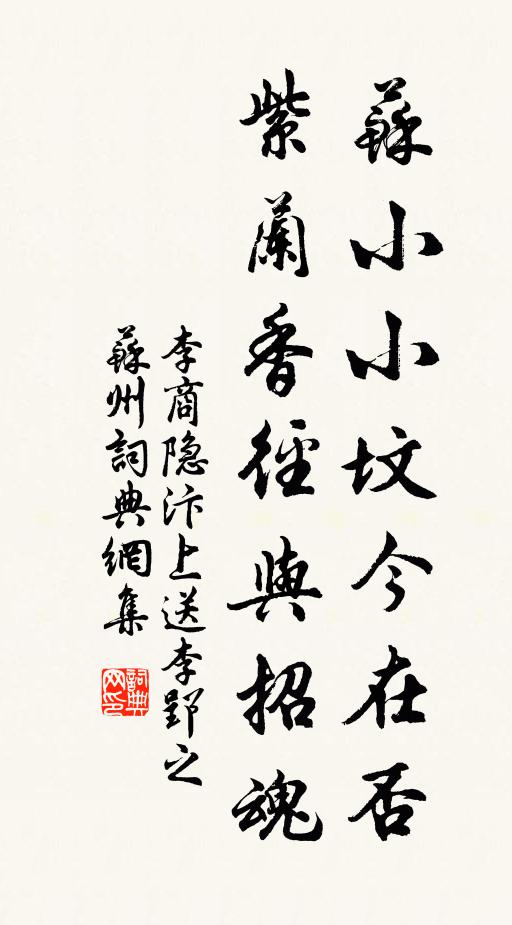 蘇小小坟今在否
紫蘭香徑與招魂
李商隐汴上送李郢之
蘇州詞典網集
詞典
网印